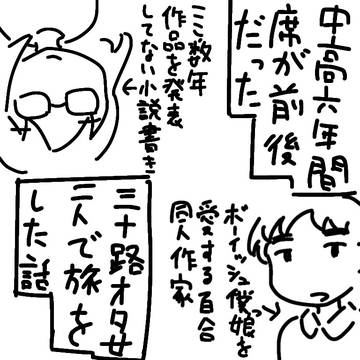 中高六年間
席が前後
だった
ここ数年
作品を発表
してない小説書き
ボーイッシュ僕っ
娘を
愛する百合
同人作家
三十路オタ女
二人で旅を
した話